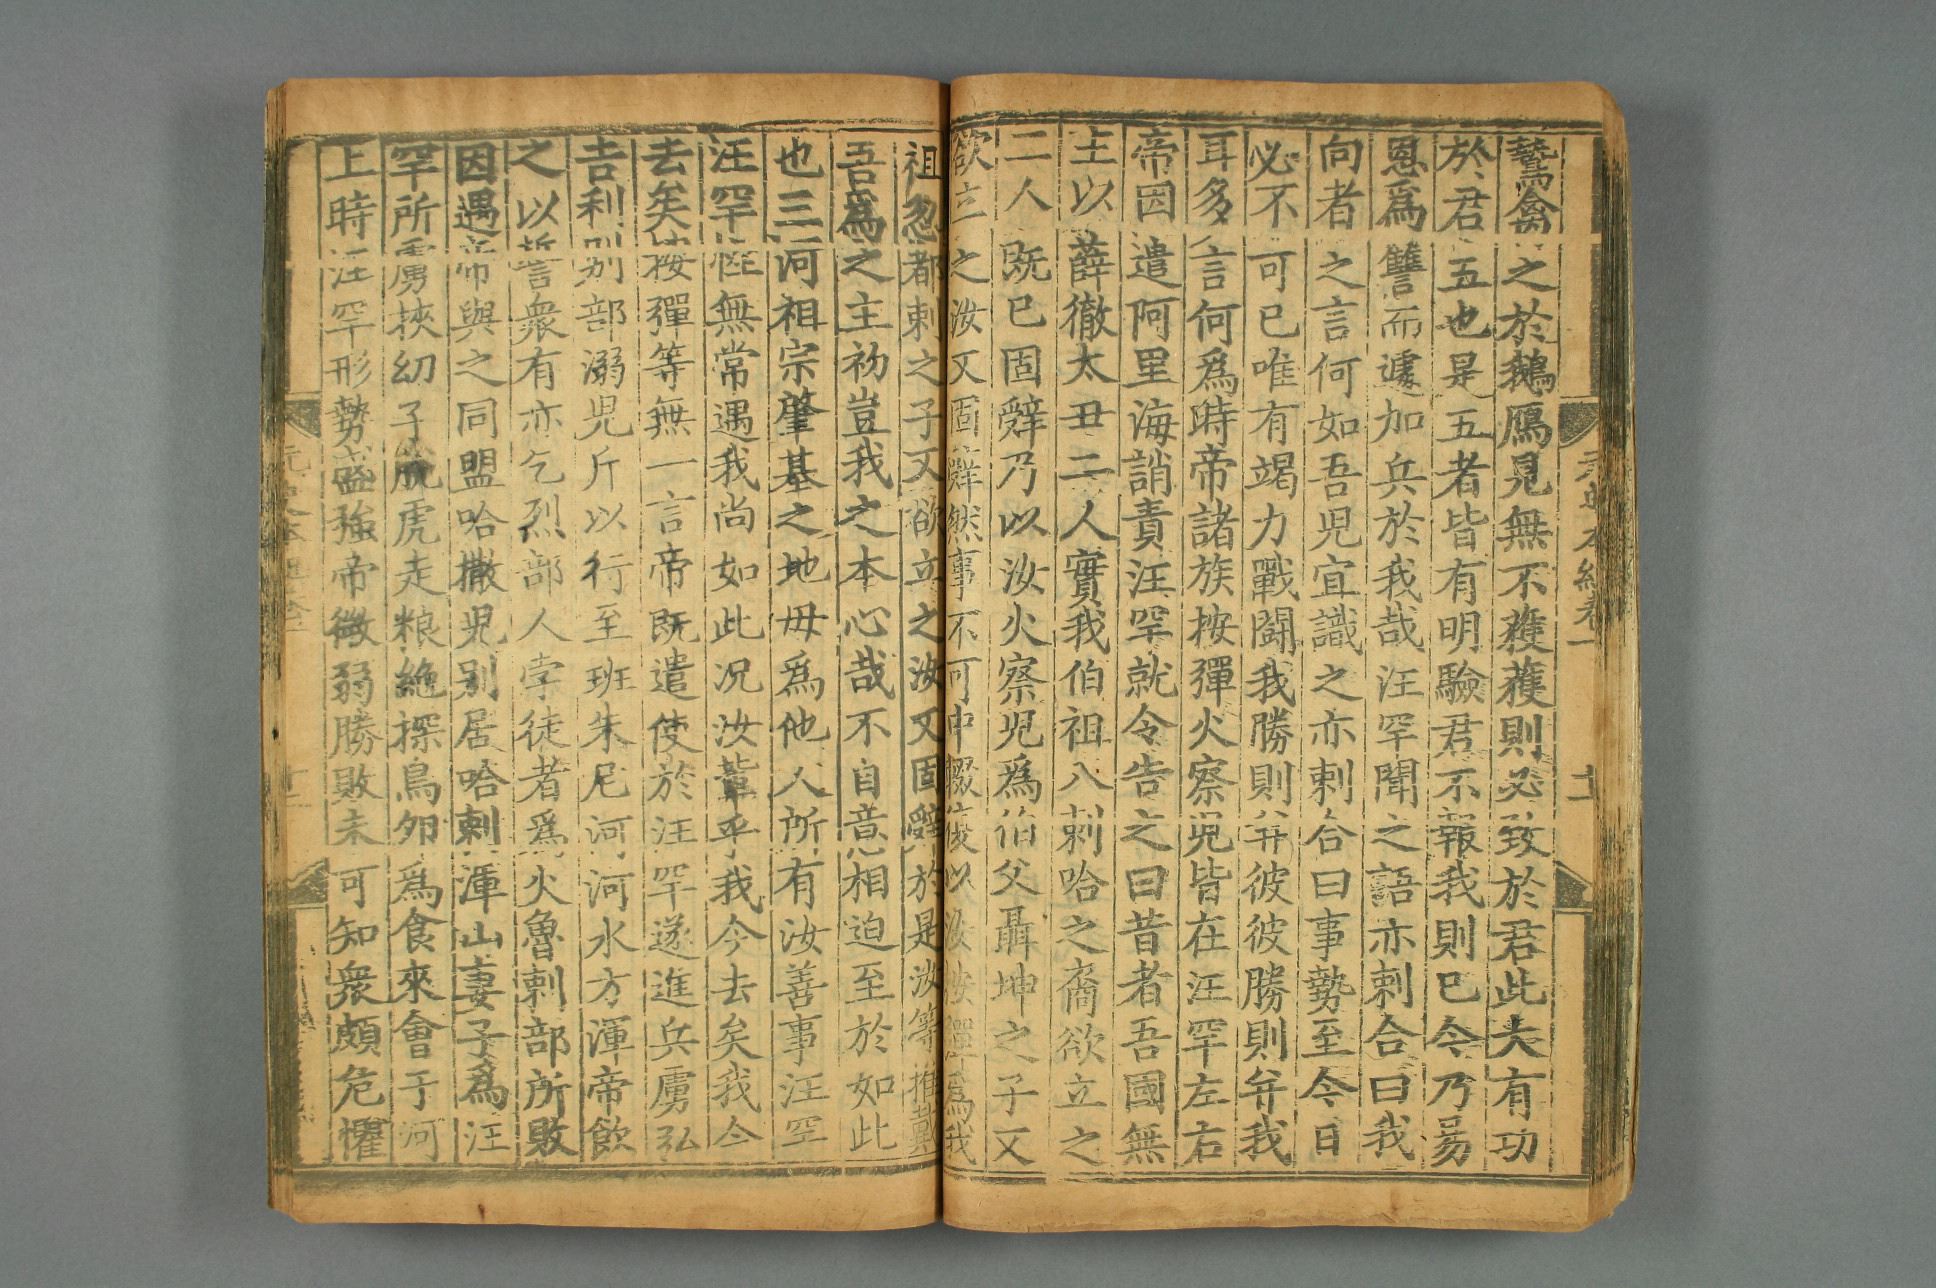 鷙禽之於鵝鴈見無不獲獲則必致於君此大有功
於君五也是五者皆有明驗君不報我則已今乃易
恩爲讐而遽加兵於我哉汪罕聞之語亦剌合曰我
向者之言何如吾兒宜識之亦剌合曰事勢至今日
必不可已唯有竭力戰鬪我勝則并彼彼勝則并我
耳多言何爲時帝諸族按彈火察兒皆在汪罕左右
帝因遣阿里海誚責汪罕就令告之曰昔者吾國無
主以薛徹太丑二人實我伯祖八剌哈之裔欲立之
二人既已固辭乃以汝火察兒爲伯父聶坤之子又
欲立之汝又固辭然事不可中輟復以汝按彈爲我
祖忽都剌之子又欲立之汝又固辭於是汝等推戴
吾爲之主初豈我之本心哉不自意相迫至於如此
也三河祖宗肇基之地毋爲他人所有汝善事汪罕
汪罕性無常遇我尚如此况汝輩乎我今去矣我今
去矣按彈等無一言帝既遣使於汪罕遂進兵虜弘
吉利别部溺兒斤以行至班朱尼河河水方渾帝飲
之以誓衆有亦乞烈部人孛徒者爲火魯剌部所敗
因遇帝與之同盟哈撒兒别居哈剌渾山妻子爲汪
罕所虜挾幼子脫虎走粮絶探鳥卵爲食來會于河
上時汪罕形勢盛強帝微弱勝敗未可知衆頗危懼
元史本紀卷一
十一